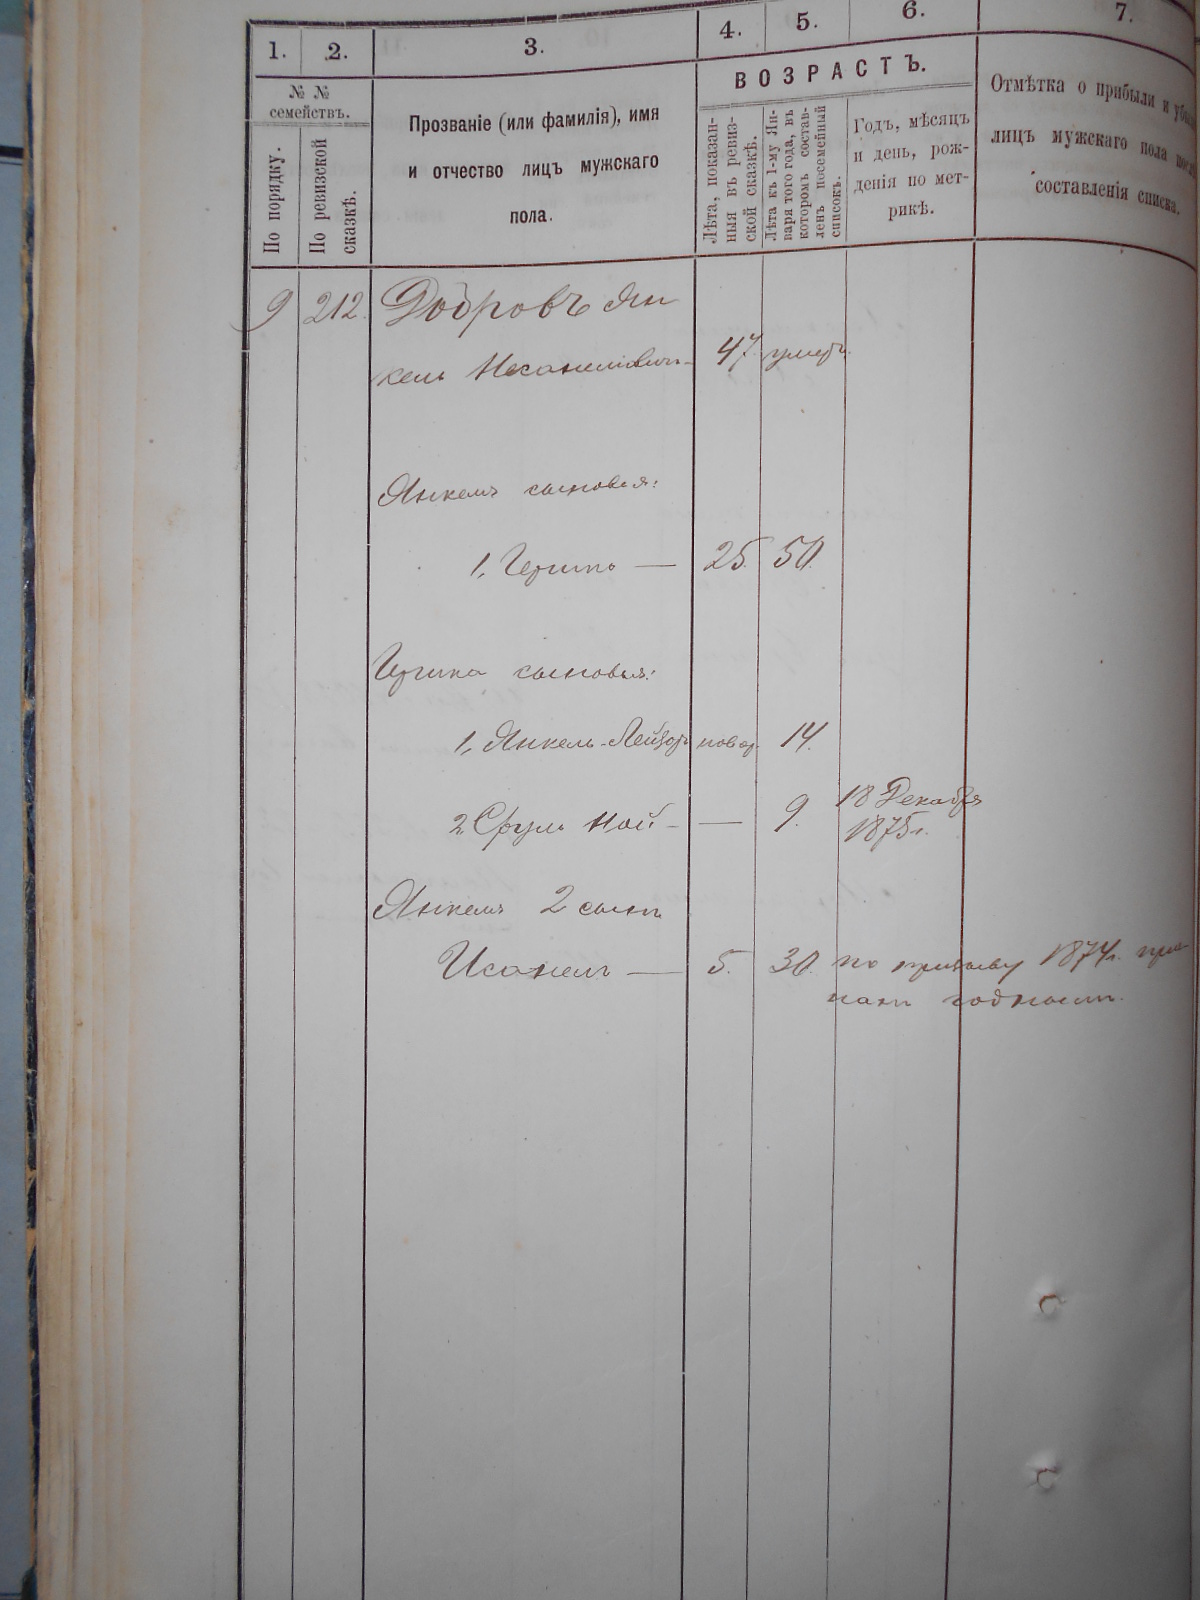 1. 2. 3. 4. 5. 6. 7.
№ №
семействъ.
По порядку.
По ревизской
сказкѣ.
Прозваніе (или фамилія), имя
и отчество лицъ мужскаго
пола.
ВОЗРАСТЪ.
Лѣта, показан-
ныя въ ревиз-
ской сказкѣ.
Лѣта къ 1-му Ян-
варя того года, въ
которомъ состав-
ленъ посемейный
списокъ.
Годъ, мѣсяцъ
и день, рож-
денія по мет-
рикѣ.
Отмѣтка о прибыли и
лицъ мужскаго пола
составленія списка.
9 212. Добровъ Ян
кель 47. умеръ
Янкеля сыновья:
1, Гершко — 25. 50.
Гершка сыновья:
1, Янкель-Лейзоръ новор. 14.
2 Сруль Ной — — 9. 18 Декабря
1875 г.
Янкеля 2 сынъ
— 5. 30. по призыву 1874 г. при